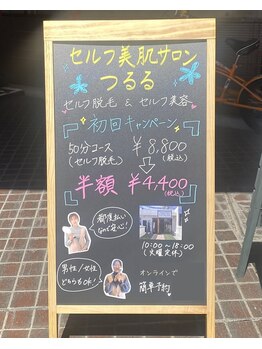 セルフ美肌サロン
つるる
セルフ脱毛 & セルフ美容
初回キャンペーン
50分コース
(セルフ脱毛)
¥8,800
(税込)
半額 ¥4,400
(税込)
都度払い
なので安心!
10:00~18:00
(火曜定休)
男性/女性
どちらもOK!
オンラインで
簡単予約